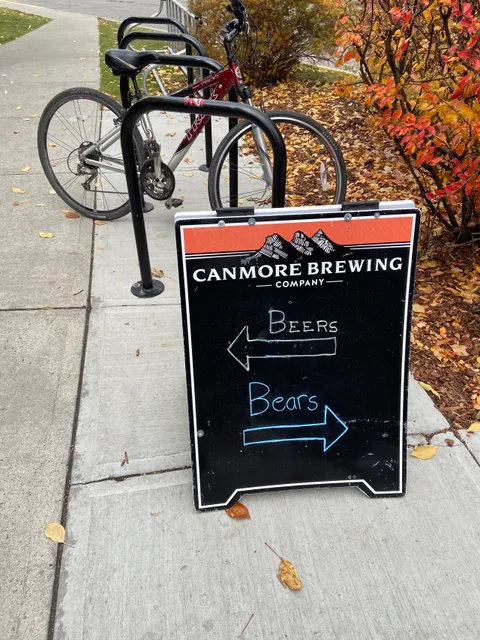 CANMORE BREWING
COMPANY
BEERS
Bears